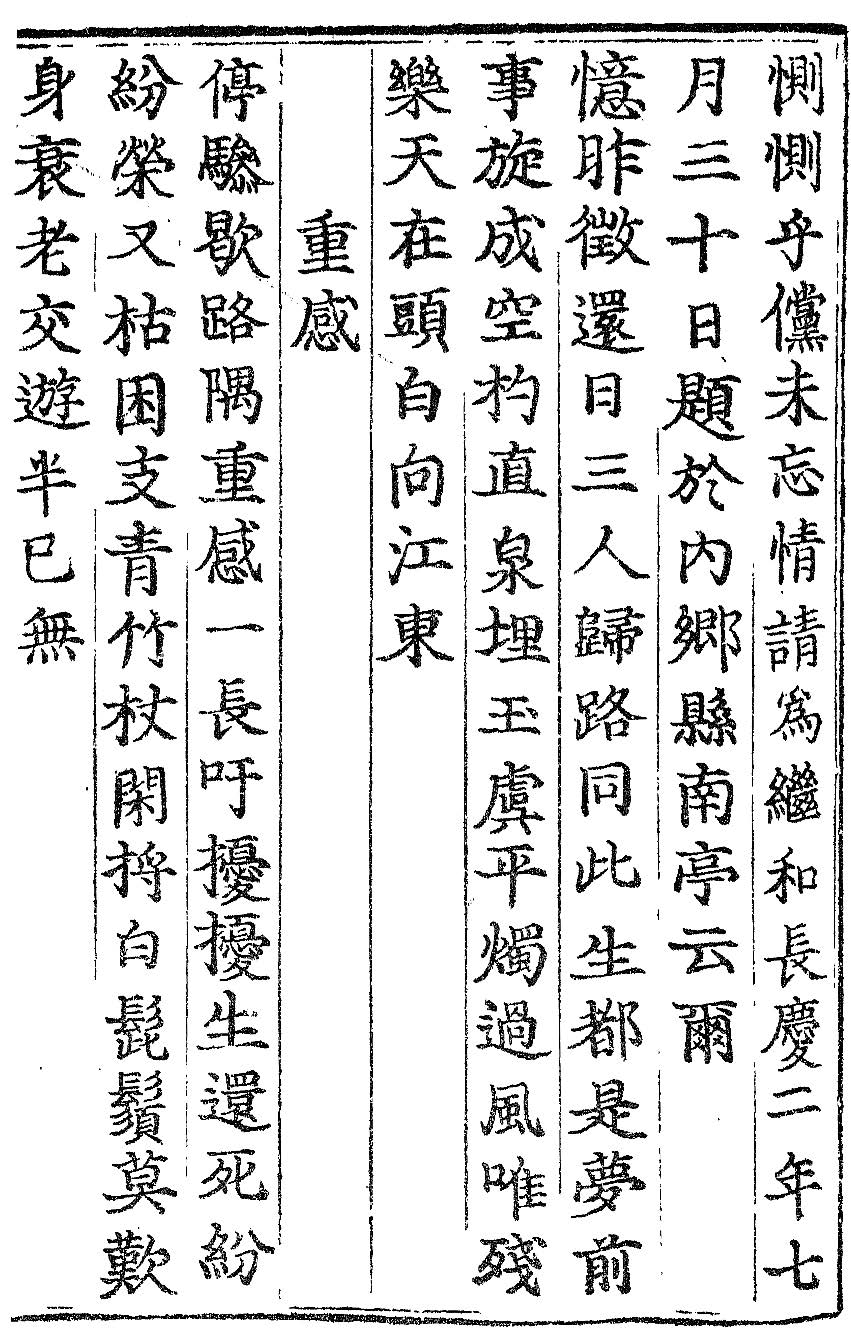 惻惻乎儻未忘情請爲繼和長慶二年七
月三十日題於內鄉縣南亭云爾
憶昨徵還日三人歸路同此生都是夢前
事旋成空杓直泉埋玉虞平燭過風唯殘
樂天在頭白向江東
重感
停驂歇路隅重感一長吁擾擾生還死紛
紛榮又枯困支青竹杖閑捋白髭鬚莫歎
身衰老交遊半已無